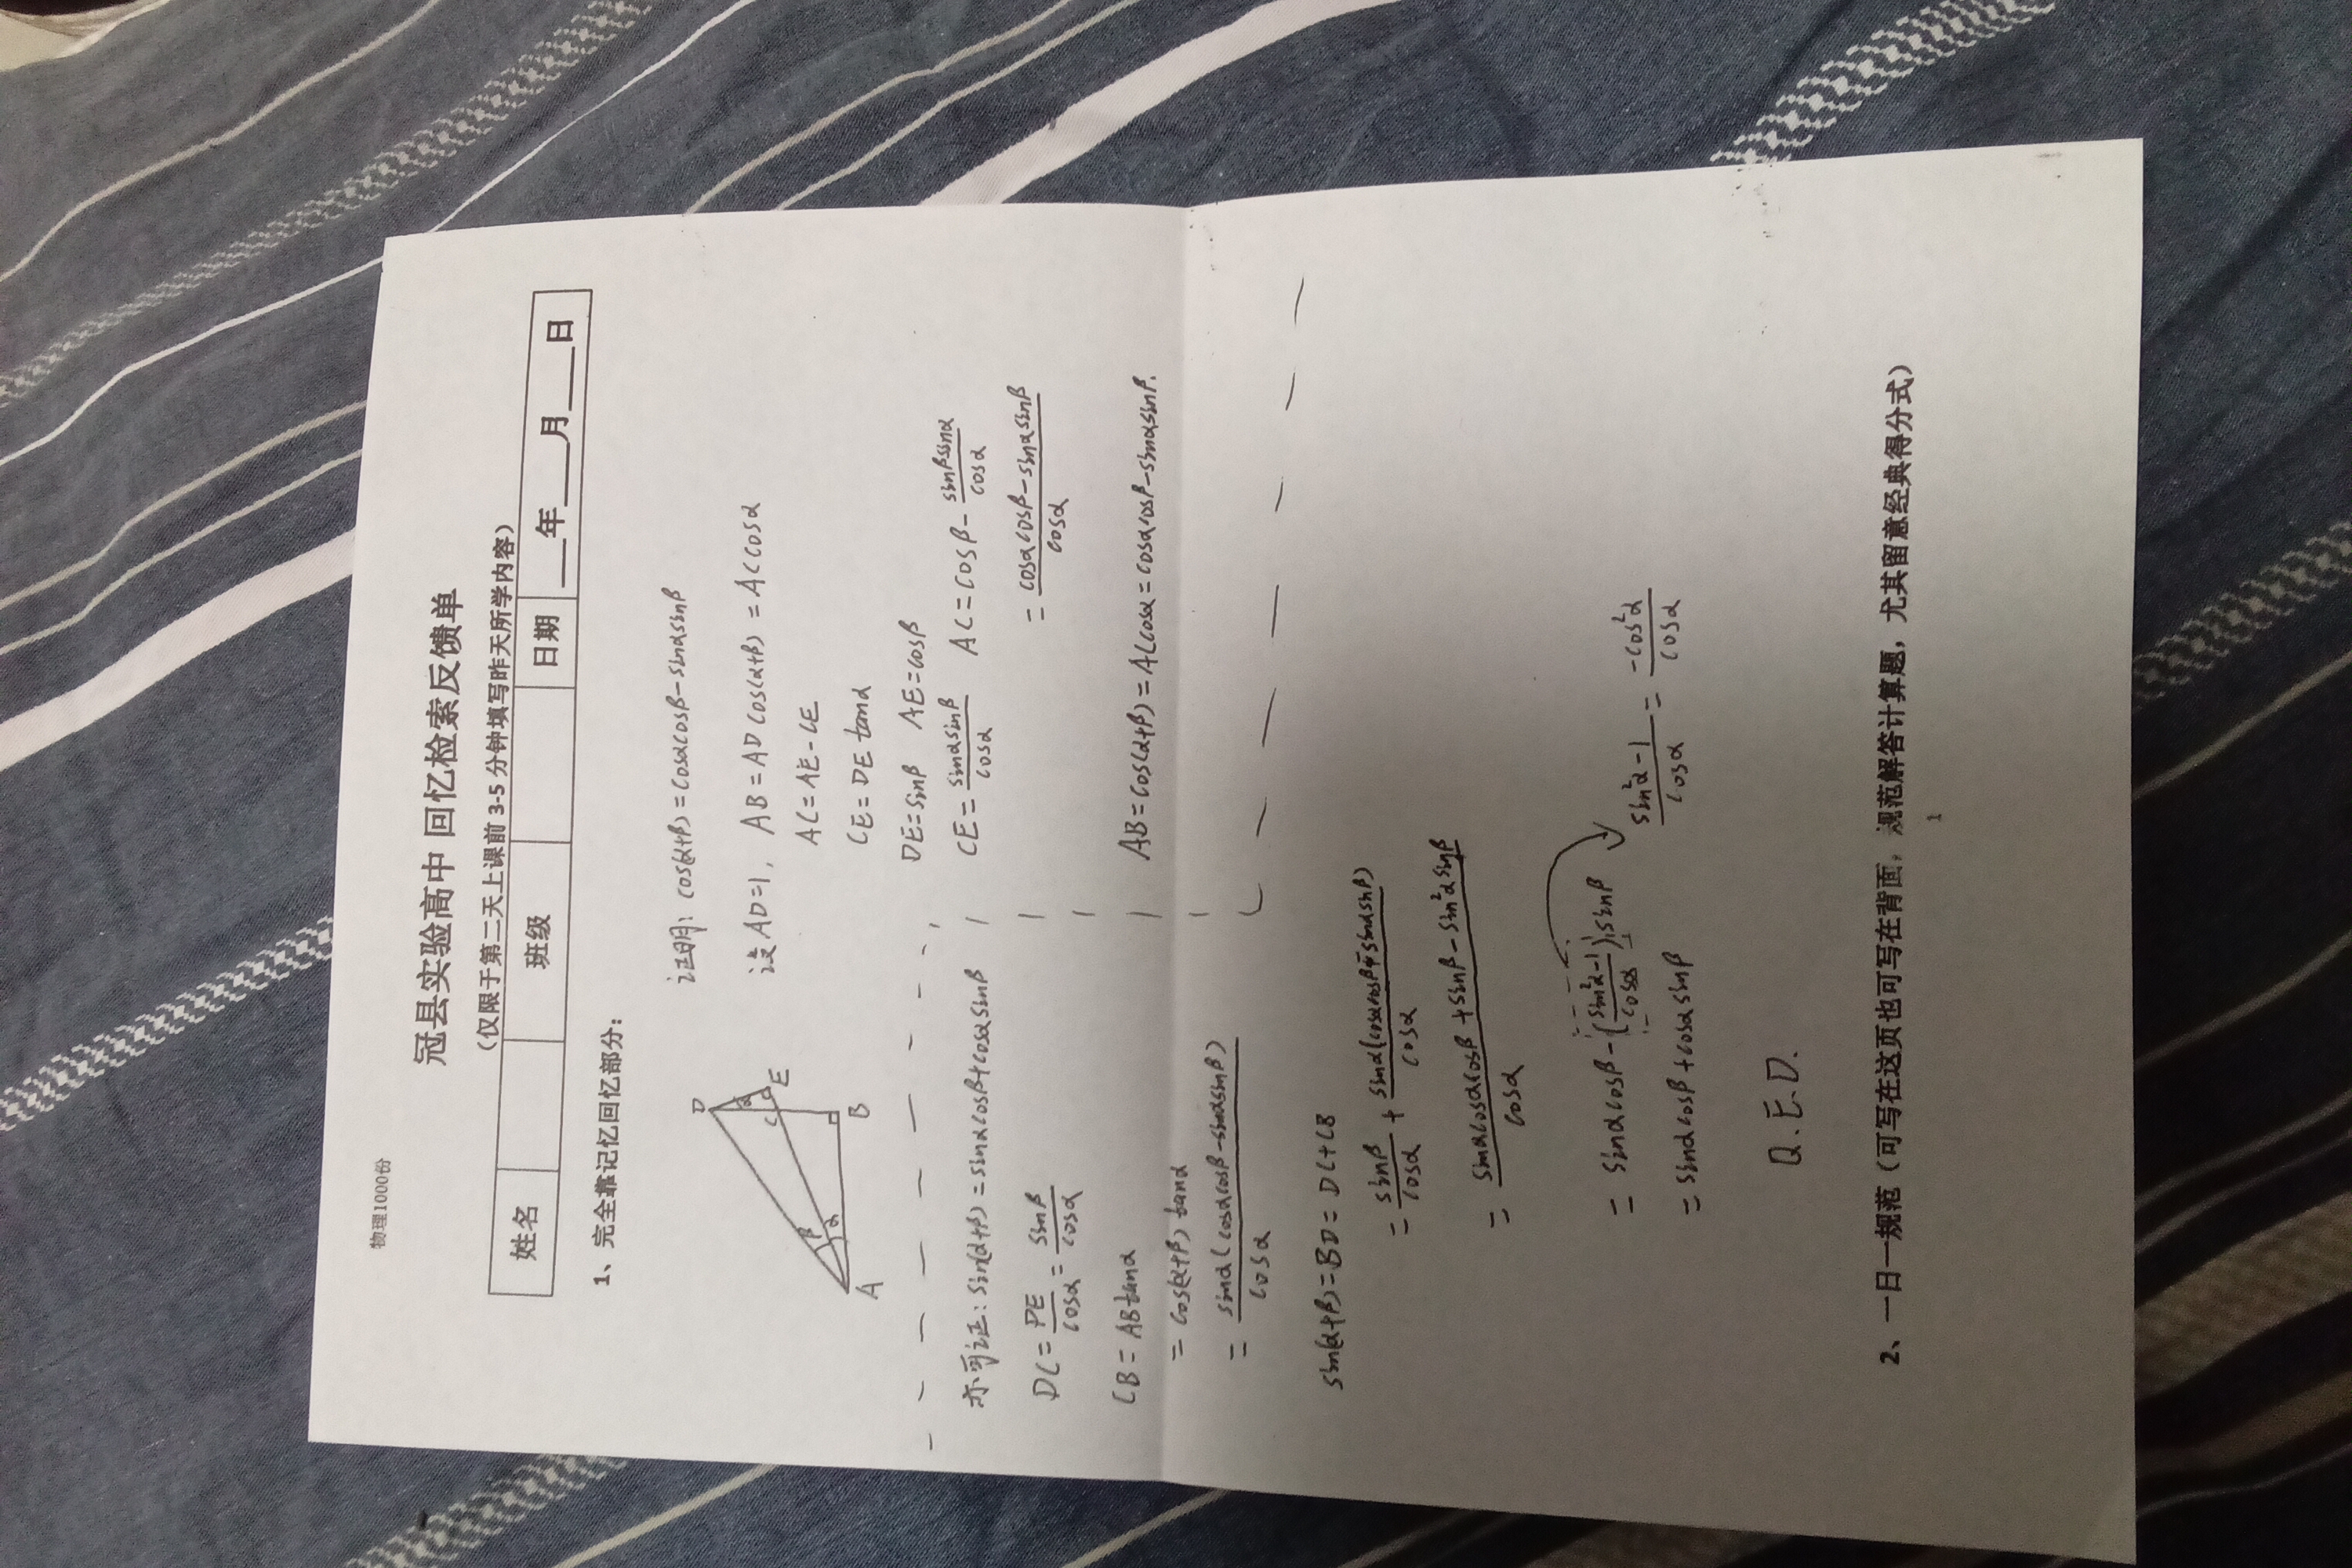 物理1000份
冠县实验高中 回忆检索反馈单
（仅限于第二天上课前 3-5 分钟填写昨天所学内容）
姓名 班级 日期 ___年___月___日
1、完全靠记忆回忆部分：
证明：cos(α+β)=cosαcosβ-sinαsinβ
D
α
C E
β
α
A B
设AD=1, AB=ADcos(α+β)=ACcosα
AC=AE-CE
CE=DEtanα
DE=sinβ AE=cosβ
CE=\frac{sinαsinβ}{cosα} AC=cosβ-\frac{sinβsinα}{cosα}
=\frac{cosαcosβ-sinαsinβ}{cosα}
AB=cos(α+β)=ACcosα=cosαcosβ-sinαsinβ.
亦可证：sin(α+β)=sinαcosβ+cosαsinβ
DC=\frac{DE}{cosα}=\frac{sinβ}{cosα}
CB=ABtanα
=cos(α+β)tanα
=\frac{sinα(cosαcosβ-sinαsinβ)}{cosα}
sin(α+β)=BD=DC+CB
=\frac{sinβ}{cosα}+\frac{sinα(cosαcosβ-sinαsinβ)}{cosα}
=\frac{sinαcosαcosβ+sinβ-sin²αsinβ}{cosα}
=sinαcosβ-(\frac{sin²α-1}{cosα})sinβ
\frac{sin²α-1}{cosα}=\frac{-cos²α}{cosα}
=sinαcosβ+cosαsinβ
Q.E.D.
2、一日一规范（可写在这页也可写在背面，规范解答计算题，尤其留意经典得分式）
1